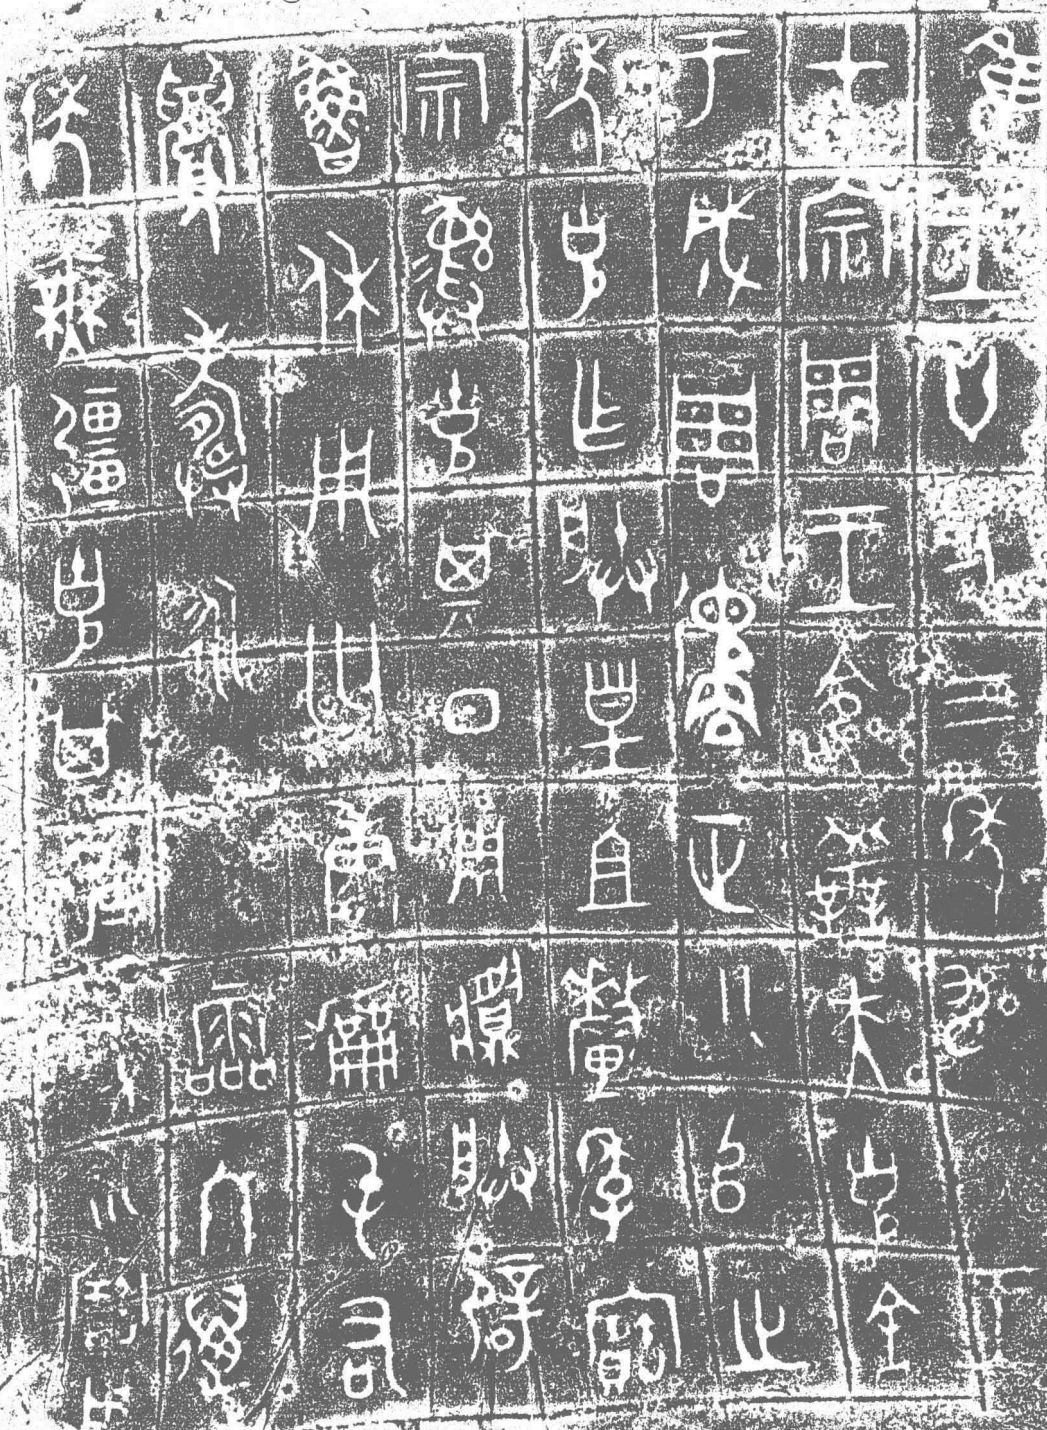 隹王廿又三年九月王
才宗周王令善夫克舍
于成周遹正八𠂤之
年克乍朕皇且釐季寶
宗彝克其日用䵼朕辟
魯休用匄康勵屯右
眉壽永令霝冬萬
年無疆克其子子孫孫永寶用